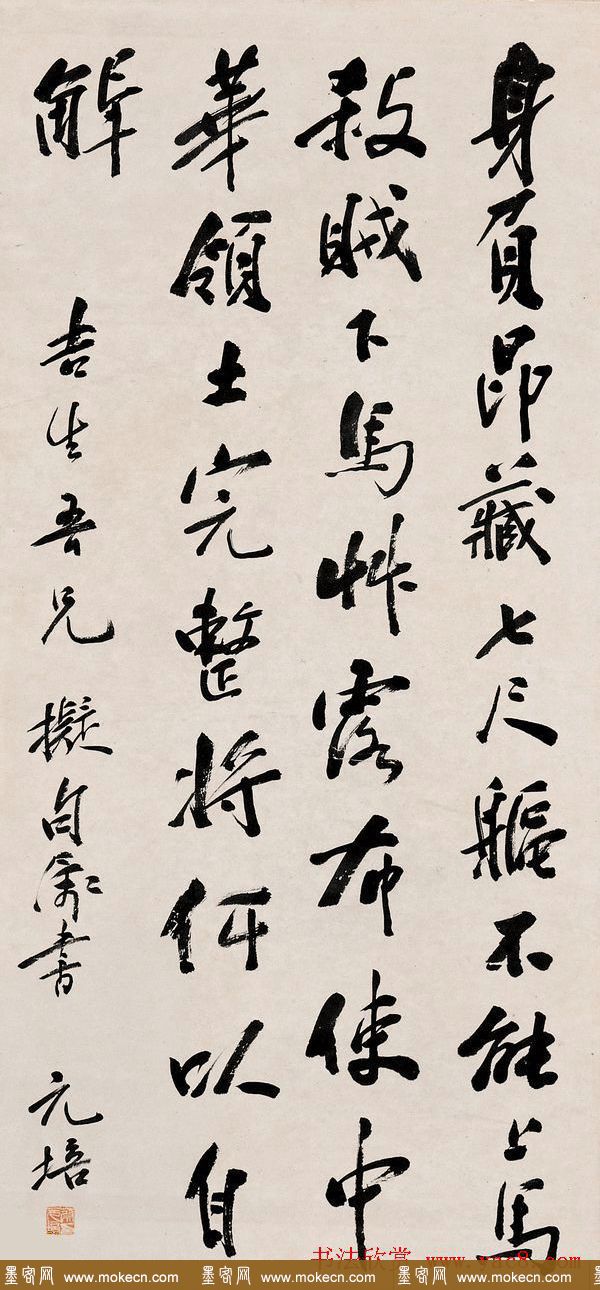 身負昂藏七尺軀不能上馬
殺賊下馬艸露布使中
華領土完整將何以自
解
吉生吾兄 擬句屬書 元培
书法欣赏 www.yac8.com
墨客网 www.mokecn.com 墨客网 www.mokecn.com 墨客网 www.mokecn.com